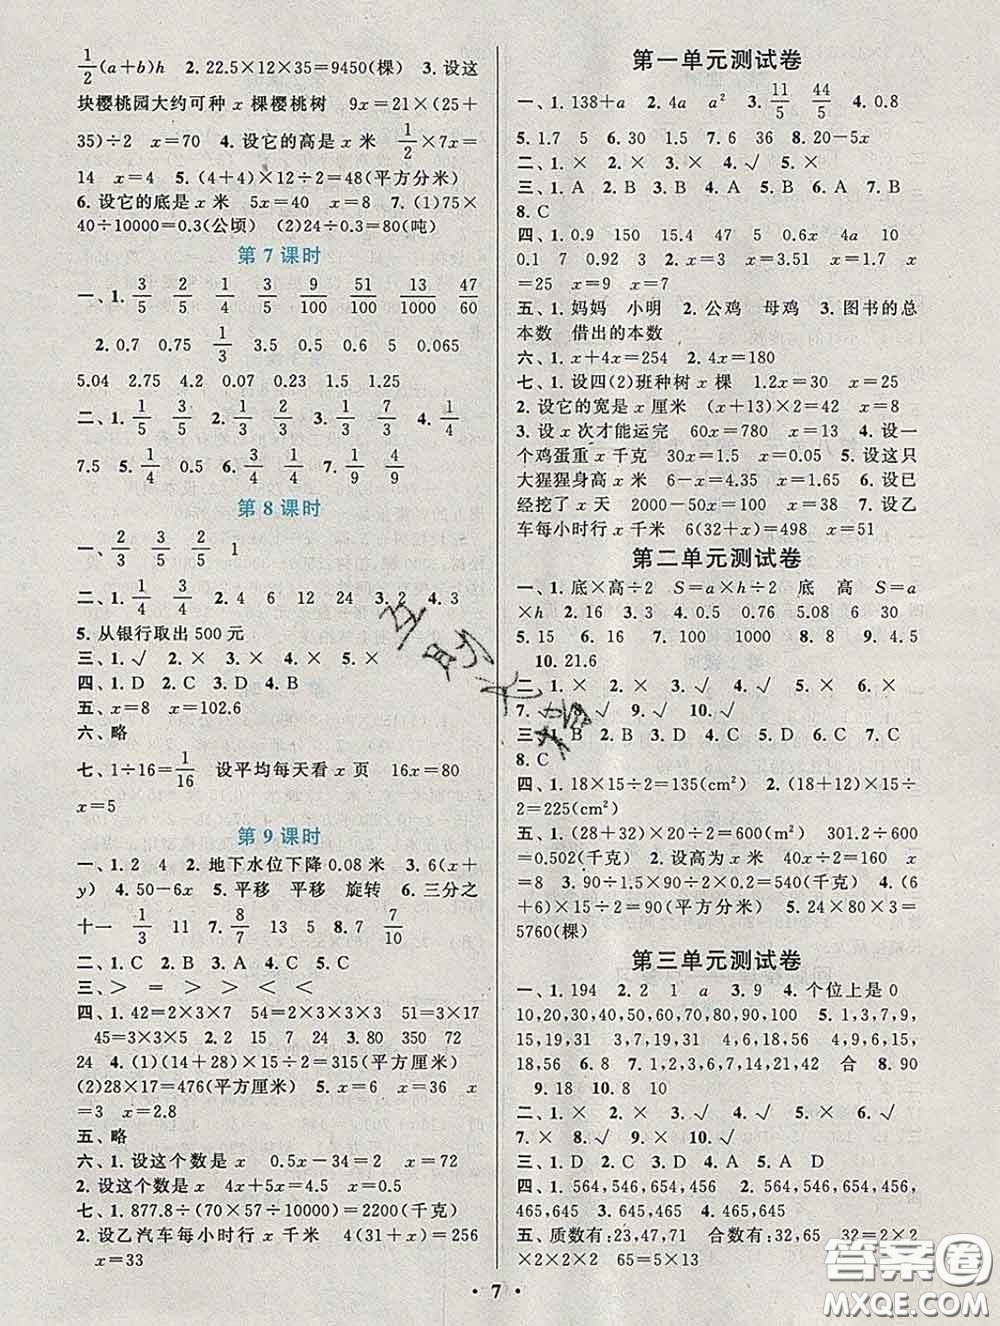 1/2(a+b)h 2. 22.5×12×35=9450(棵) 3. 设这
块樱桃园大约可种 x 棵樱桃树 9x=21×(25+
35)÷2 x=70 4. 设它的高是 x 米 1/2×7x=
14 x=4 5. (4+4)×12÷2=48(平方分米)
6. 设它的底是 x 米 5x=40 x=8 7. (1)75×
40÷10000=0.3(公顷) (2)24÷0.3=80(吨)
第 7 课时
一、1. 3/5 2/5 1/4 3/5 9/100 51/100 13/100 47/60
2. 0.7 0.75 1/3 3.5 0.5 0.6 5 0.065
5.04 2.75 4.2 0.07 0.23 1.5 1.25
二、1. 1/5 3/5 2. 1/3 2/3 3. 1/3 7/3 4. 1/4
7.5 5. 1/4 0.5 6. 1/4 4/9 5/9
第 8 课时
一、2/3 3/5 2/5 1
二、1. 1/4 3/4 2. 4 6 12 24 3. 2 4. 3
5. 从银行取出 500 元
三、1. √ 2. × 3. × 4. × 5. ×
四、1. D 2. A 3. D 4. B
五、x=8 x=102.6
六、略
七、1÷16=1/16 设平均每天看 x 页 16x=80
x=5
第 9 课时
一、1. 2 4 2. 地下水位下降 0.08 米 3. 6(x+
y) 4. 50-6x 5. 平移 平移 旋转 6. 三分之
十一 1/3 11 7. 8/7 13 5 8. 7 7/10
二、1. C 2. B 3. A 4. C 5. C
三、> = > > < <
四、1. 42=2×3×7 54=2×3×3×3
45=3×3×5 2. 2 15 7 24 3. 80 352
24 4. (1)(14+28)×15÷2=315(平方厘米)
(2)28×17=476(平方厘米) 5. x=6 x=36 x
=3 x=2.8
五、略
六、1. 设这个数是 x 0.5x-34=2 x=72
2. 设这个数是 x 4x+5=4.5 x=0.5
七、1. 877.8÷(70×57÷10000)=2200(千克)
2. 设乙汽车每小时行 x 千米 4(31+x)=256
x=33
第一单元测试卷
一、1. 138+a 2. 4a a² 3. 11/5 44/5 4. 0.8
5. 1.7 5 30 6. 1.5 7. 6 36 8. 20-5x
二、1. × 2. × 3. × 4. √ 5. ×
三、1. A 2. B 3. A 4. B 5. B 6. A 7. B
8. C
四、1. 0.9 150 15.4 75 5 0.6x 4a 10
0.1 7 0.92 3 2. x=3 x=3.51 x=1.7 x
=25 x=9 x=7
五、1. 妈妈 小明 2. 公鸡 母鸡 3. 图书的总
本数 借出的本数
六、1. x+4x=254 2. 4x=180
七、1. 设四(2)班种树 x 棵 1.2x=30 x=25
2. 设它的宽是 x 厘米 (x+13)×2=42 x=8
3. 设 x 次才能运完 60x=780 x=13 4. 设一
个鸡蛋重 x 千克 30x=1.5 x=0.05 5. 设这只
大猩猩身高 x 米 6-x=4.35 x=1.65 6. 设已
经挖了 x 天 2000-50x=100 x=38 7. 设乙
车每小时行 x 千米 6(32+x)=498 x=51
第二单元测试卷
一、1. 底×高÷2 S=a×h÷2 底 高 S=a
×h 2. 16 3. 3 4. 0.76 0.105 5.08 6 30
5. 15 6. 16 7. 100 1000 8. 8 9. 4.5
10. 21.6
二、1. × 2. × 3. √ 4. × 5. × 6. ×
7. √ 8. √ 9. √ 10. √
三、1. B 2. B 3. C 4. C 5. A 6. B 7. A
8. C
四、1. 18×15÷2=135(cm²) 2. (18+12)×15÷
2=225(cm²)
五、1. (28+32)×20÷2=600(平方米) 301.2÷600
=0.502(千克) 2. 设高为 x 米 40x÷2=160 x
=8 3. 90÷1.5×90×2×0.2=540(千克) 4. (6
+6)×15÷2=90(平方分米) 5. 24×80×3=
5760(棵)
第三单元测试卷
一、1. 194 2. 2 1 a 3. 9 4. 个位上是 0
10,20,30,40,50,60,70,80,90 5. 1,3,7,9,
13,15,19,31,37,39,41,43 6. 4,6,9,10,15,
18,56 6. 8 7. 1,9,13,15,39,47 合 8. 90
9. 18 10. 8 10
二、1. × 2. × 3. √ 4. √ 5. × 6. √
7. × 8. √ 9. × 10. √
三、1. D 2. C 3. A 4. B 5. A D
四、1. 564,546,654,456 2. 564,546,654,456,
465,645 3. 645,465 4. 645,465
五、质数有:23,47,71 合数有:32=2×2
×2×2×2 65=5×13
互助文档
答案圈
MXQE.COM
• 7 •